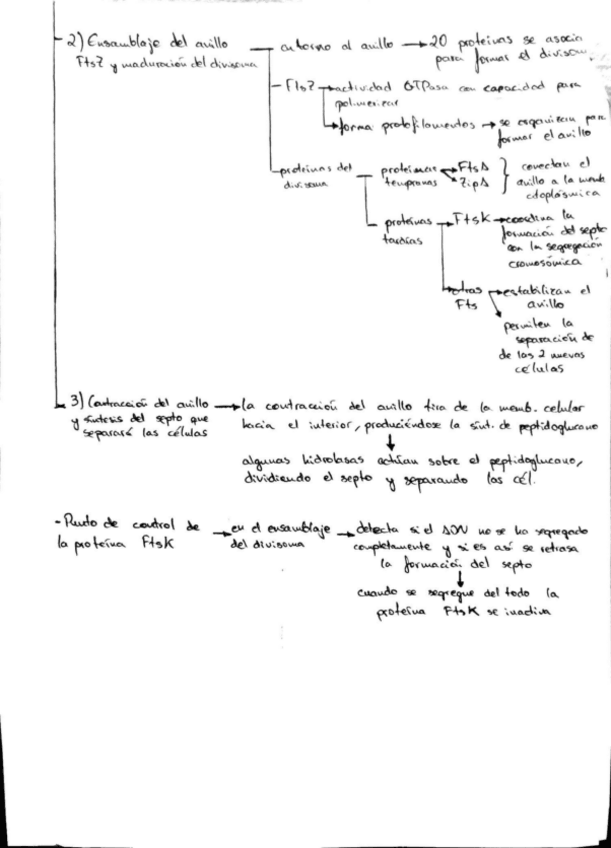 - 2) Ensamblaje del anillo
FtsZ y maduración del divisoma
entorno al anillo → 20 proteínas se asocia
para formar el diviso
- FtsZ → actividad GTPasa con capacidad para
polimerizar
→ forma protofilamentos → se organizan par
formar el anillo
- proteínas del
divisoma
proteínas
tempranas
→ FtsA
→ ZipA
} conectan el
anillo a la memb
citoplásmica
proteínas
tardías
→ FtsK → coordina la
formación del septo
con la segregación
cromosómica
→ otras
Fts
→ estabilizan el
anillo
permiten la
separación de
de las 2 nuevas
células
3) Contracción del anillo
y síntesis del septo que
separará las células
→ la contracción del anillo tira de la memb. celular
hacia el interior, produciéndose la sínt. de peptidoglucano
↓
algunas hidrolasas actúan sobre el peptidoglucano,
dividiendo el septo y separando las cél.
- Punto de control de
la proteína FtsK
→ en el ensamblaje
del divisoma
→ detecta si el ADN no se ha segregado
completamente y si es así se retrasa
la formación del septo
↓
cuando se segregue del todo la
proteína FtsK se inactiva